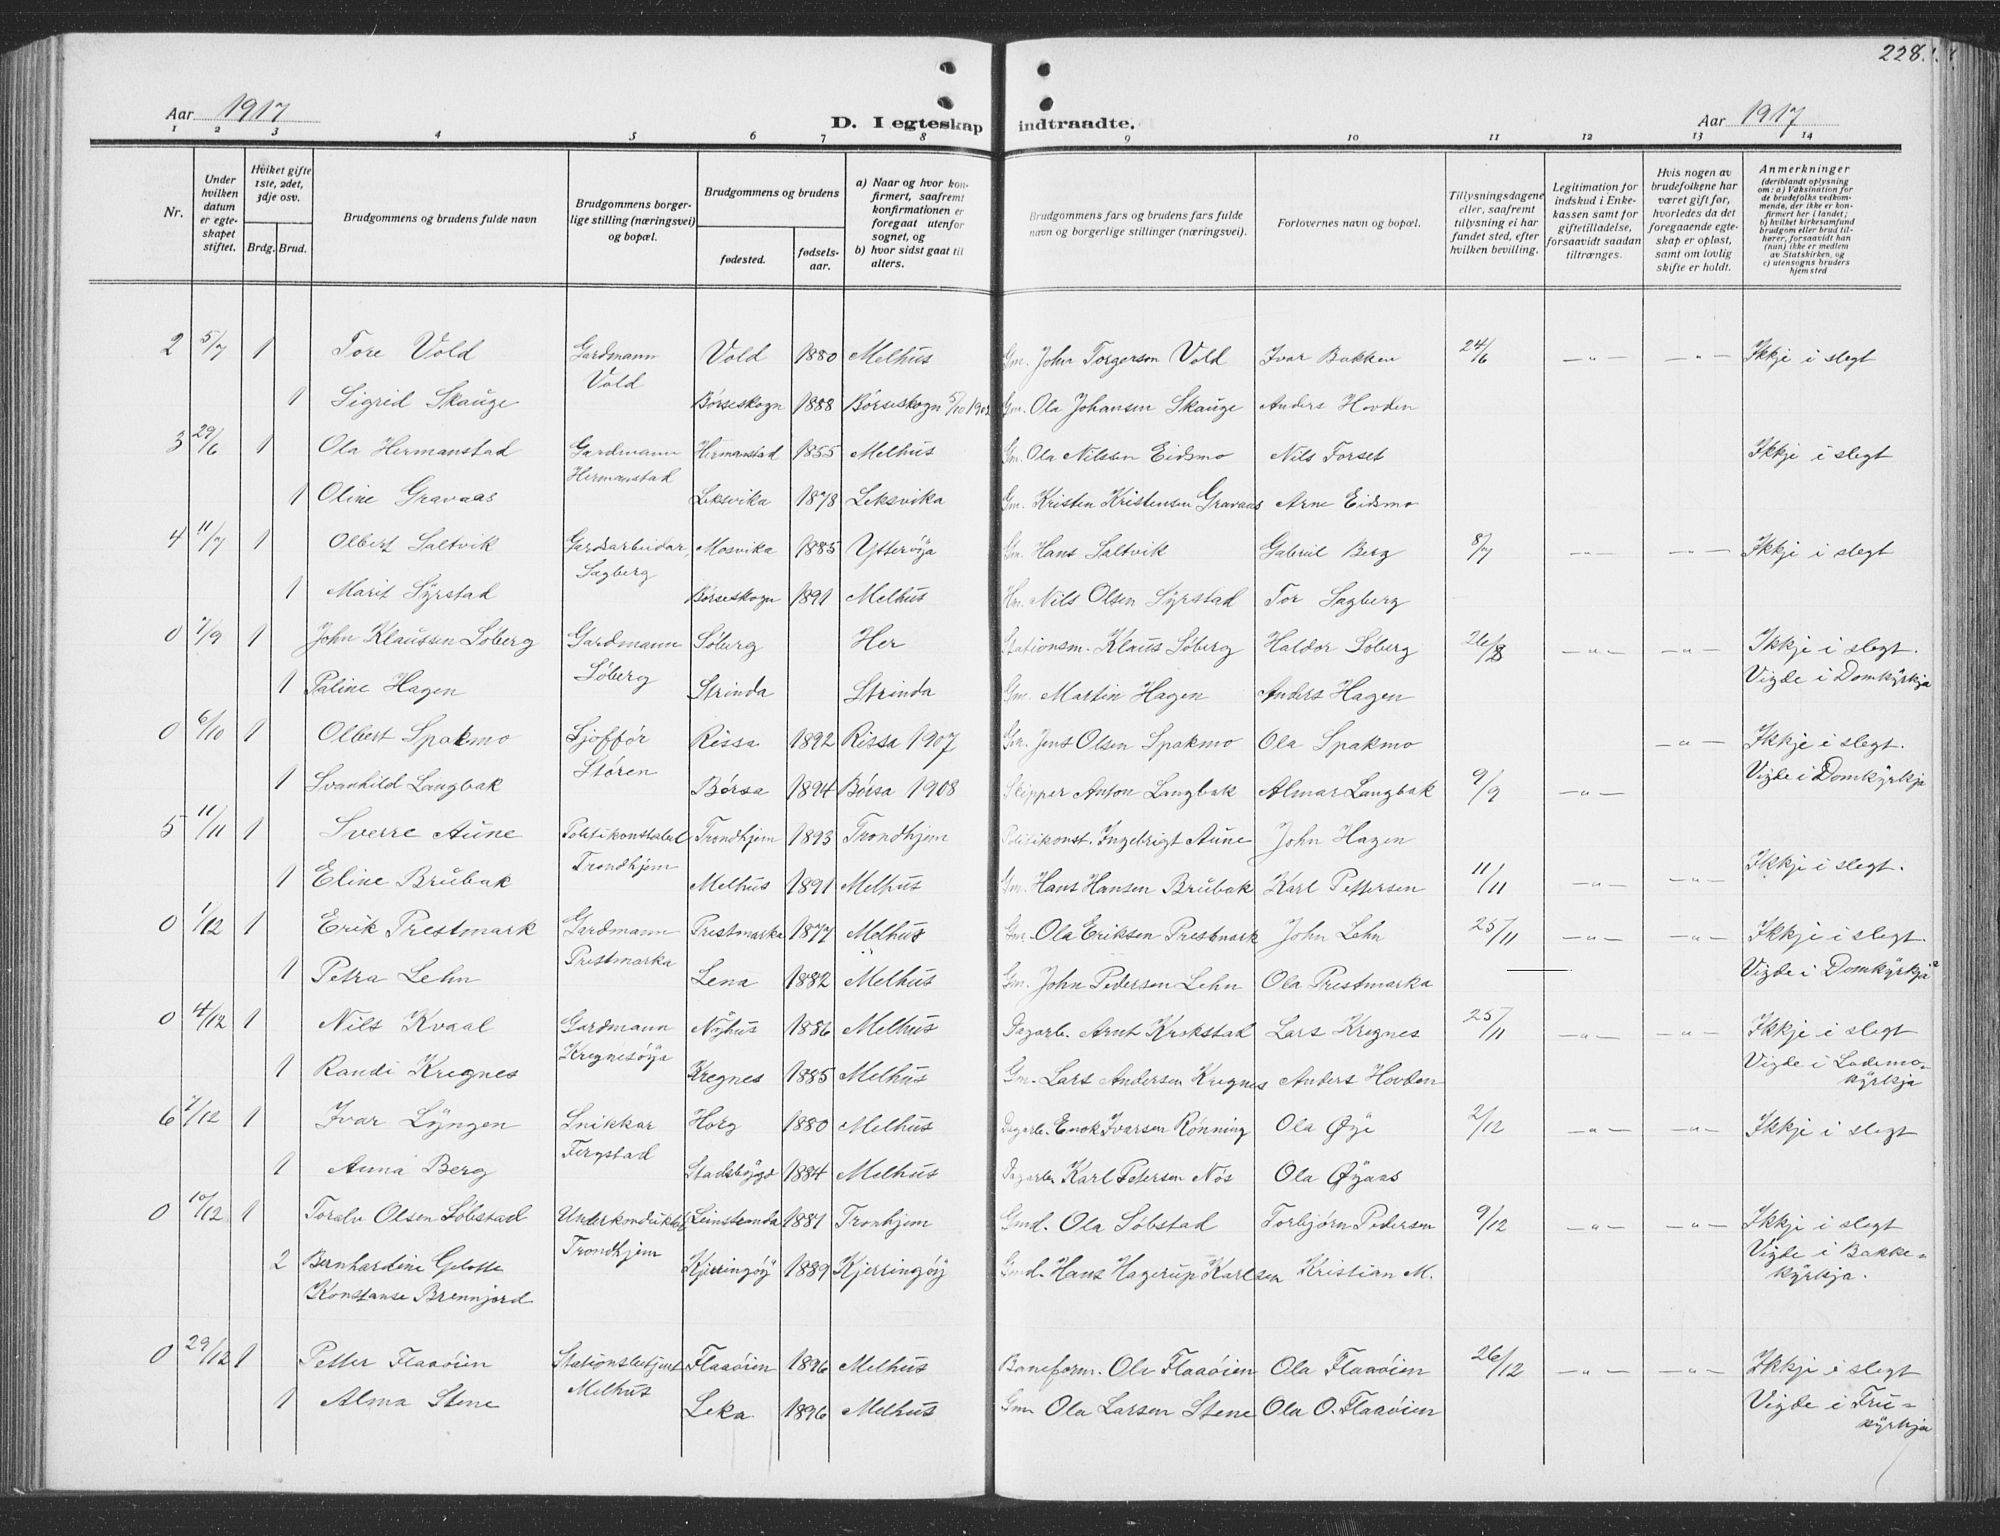 228.
Aar 1917
D. I egteskap indtraadte.
Aar 1917
1 2 3 4 5 6 7 8 9 10 11 12 13 14
Nr.
Under hvilken datum er egteskapet stiftet.
Hviket gifte 1ste, 2det, 3dje osv.
Brdg. Brud.
Brudgommens og brudens fulde navn
Brudgommens borgerlige stilling (næringsvei) og bopæl.
Brudgommens og brudens
fødested. fødselsaar.
a) Naar og hvor konfirmert, saafremt konfirmationen er foregaat utenfor sognet, og
b) hvor sidst gaat til alters.
Brudgommens fars og brudens fars fulde navn og borgerlige stillinger (næringsvei).
Forlovernes navn og bopæl.
Tillysningsdagene eller, saafremt tillysning ei har fundet sted, efter hvilken bevilling.
Legitimation for indskud i Enkekassen samt for giftetilladelse, forsaavidt saadan tiltrænges.
Hvis nogen av brudefolkene har været gift før, hvorledes da det foregaaende egteskap er opløst, samt om lovlig skifte er holdt.
Anmerkninger
(deriblandt oplysning om: a) Vaksination for de brudefolks vedkommende, der ikke er konfirmert her i landet; b) hvilket kirkesamfund brudgom eller brud tilhører, forsaavidt han (hun) ikke er medlem av Statskirken, og c) utensogns bruders hjemsted
2 5/7 1 Tore Vold Gardmann Vold 1880 Melhus Gm. John Torgersen Vold Ivar Bakken 24/6 — " — — " — Ikkje i slegt
Vold
1 Sigrid Skauge Børseskogn 1888 Børseskogn 5/10 190 Gm. Ola Johansen Skauge Anders Hovden
3 29/6 1 Ola Hermanstad Gardmann Hermanstad 1855 Melhus Gm. Ola Nilssen Eidsmo Nils Forset Ikkje i slegt
Hermanstad
1 Oline Gravaas Leksvika 1878 Leksvika Gm. Kristen Kristensen Gravaas Arne Eidsmo
4 11/7 1 Olbert Saltvik Gardsarbeidar, Mosvika 1885 Ytterøya Gm. Hans Saltvik Gabriel Berg 8/7 — " — — " — Ikkje i slegt
Sagberg
1 Marit Syrstad Børseskogn 1891 Melhus Hm. Nils Olsen Syrstad Tor Sagberg
0 7/9 1 John Klaussen Søberg Gardmann Søberg Her Stationsm. Klaus Søberg Haldor Søberg 26/8 — " — — " — Ikkje i slegt.
Søberg
1 Paline Hagen Strinda Strinda Gm. Martin Hagen Anders Hagen Vigde i Domkyrkja
0 6/10 1 Olbert Spakmo Sjoffør Rissa 1892 Rissa 1907 Gm. Jens Olsen Spakmo Ola Spakmo — " — Ikkje i slegt.
Støren
1 Svanhild Langbak Børsa 1894 Børsa 1908 Skipper Anton Langbak Almar Langbak 9/9 — " — Vigde i Domkyrkja
5 11/11 1 Sverre Aune Politikonstabel Trondhjem 1893 Trondhjem Politikonst. Ingebrigt Aune John Hagen
Trondhjem
1 Eline Brubak Melhus 1891 Melhus Gm. Hans Hansen Brubak Karl Pettersen 11/11 — " — — " — Ikkje i slegt.
0 1/12 1 Erik Prestmark Gardmann Prestmarka 1877 Melhus Gm. Ola Eriksen Prestmark John Lehn 25/11 — " — — " — Ikkje i slegt.
Prestmarka
1 Petra Lehn Lena 1882 Melhus Gm. John Pedersen Lehn Ola Prestmarka Vigde i Domkyrkja
0 4/12 1 Nils Kvaal Gardmann Nyhus 1886 Melhus Dagarb. Arnt Krokstad Lars Kregnes 25/11 — " — — " — Ikkje i slegt
Kregnesøya
1 Randi Kregnes Kregnes 1885 Melhus Gm. Lars Andersen Kregnes Anders Hovden Vigde i Lademo-
kyrkja
6 7/12 1 Ivar Lyngen Snikkar Horg 1880 Melhus Dagarb. Enok Ivarsen Rønning Ola Øye 2/12 — " — — " — Ikkje i slegt
Fergstad
1 Anna Berg Stadsbygd 1884 Melhus Dagarb. Karl Petersen Nøs Ola Øyaas
0 10/12 1 Toralv Olsen Søbstad Underkonduktør Leinstranda 1881 Tronhjem Gmd. Ola Søbstad Torbjørn Pedersen 9/12 — " — — " — Ikkje i slegt
Trondhjem
2 Bernhardine Gelotte Kjerringøy 1889 Kjerringøy Gmd. Hans Hagerup Karlsen Kristian M. Vigde i Bakke-
Konstanse Brennjord kyrkja.
0 29/12 1 Petter Flaaøien Stationsbetjent Flaaøien 1896 Melhus Baneform. Ole Flaaøien Ola Flaaøien 26/12 — " — — " — Ikkje i slegt
Melhus
1 Alma Stene Leka 1896 Melhus Gm. Ola Larsen Stene Ola O. Flaaøien Vigde i Fru-
kyrkja